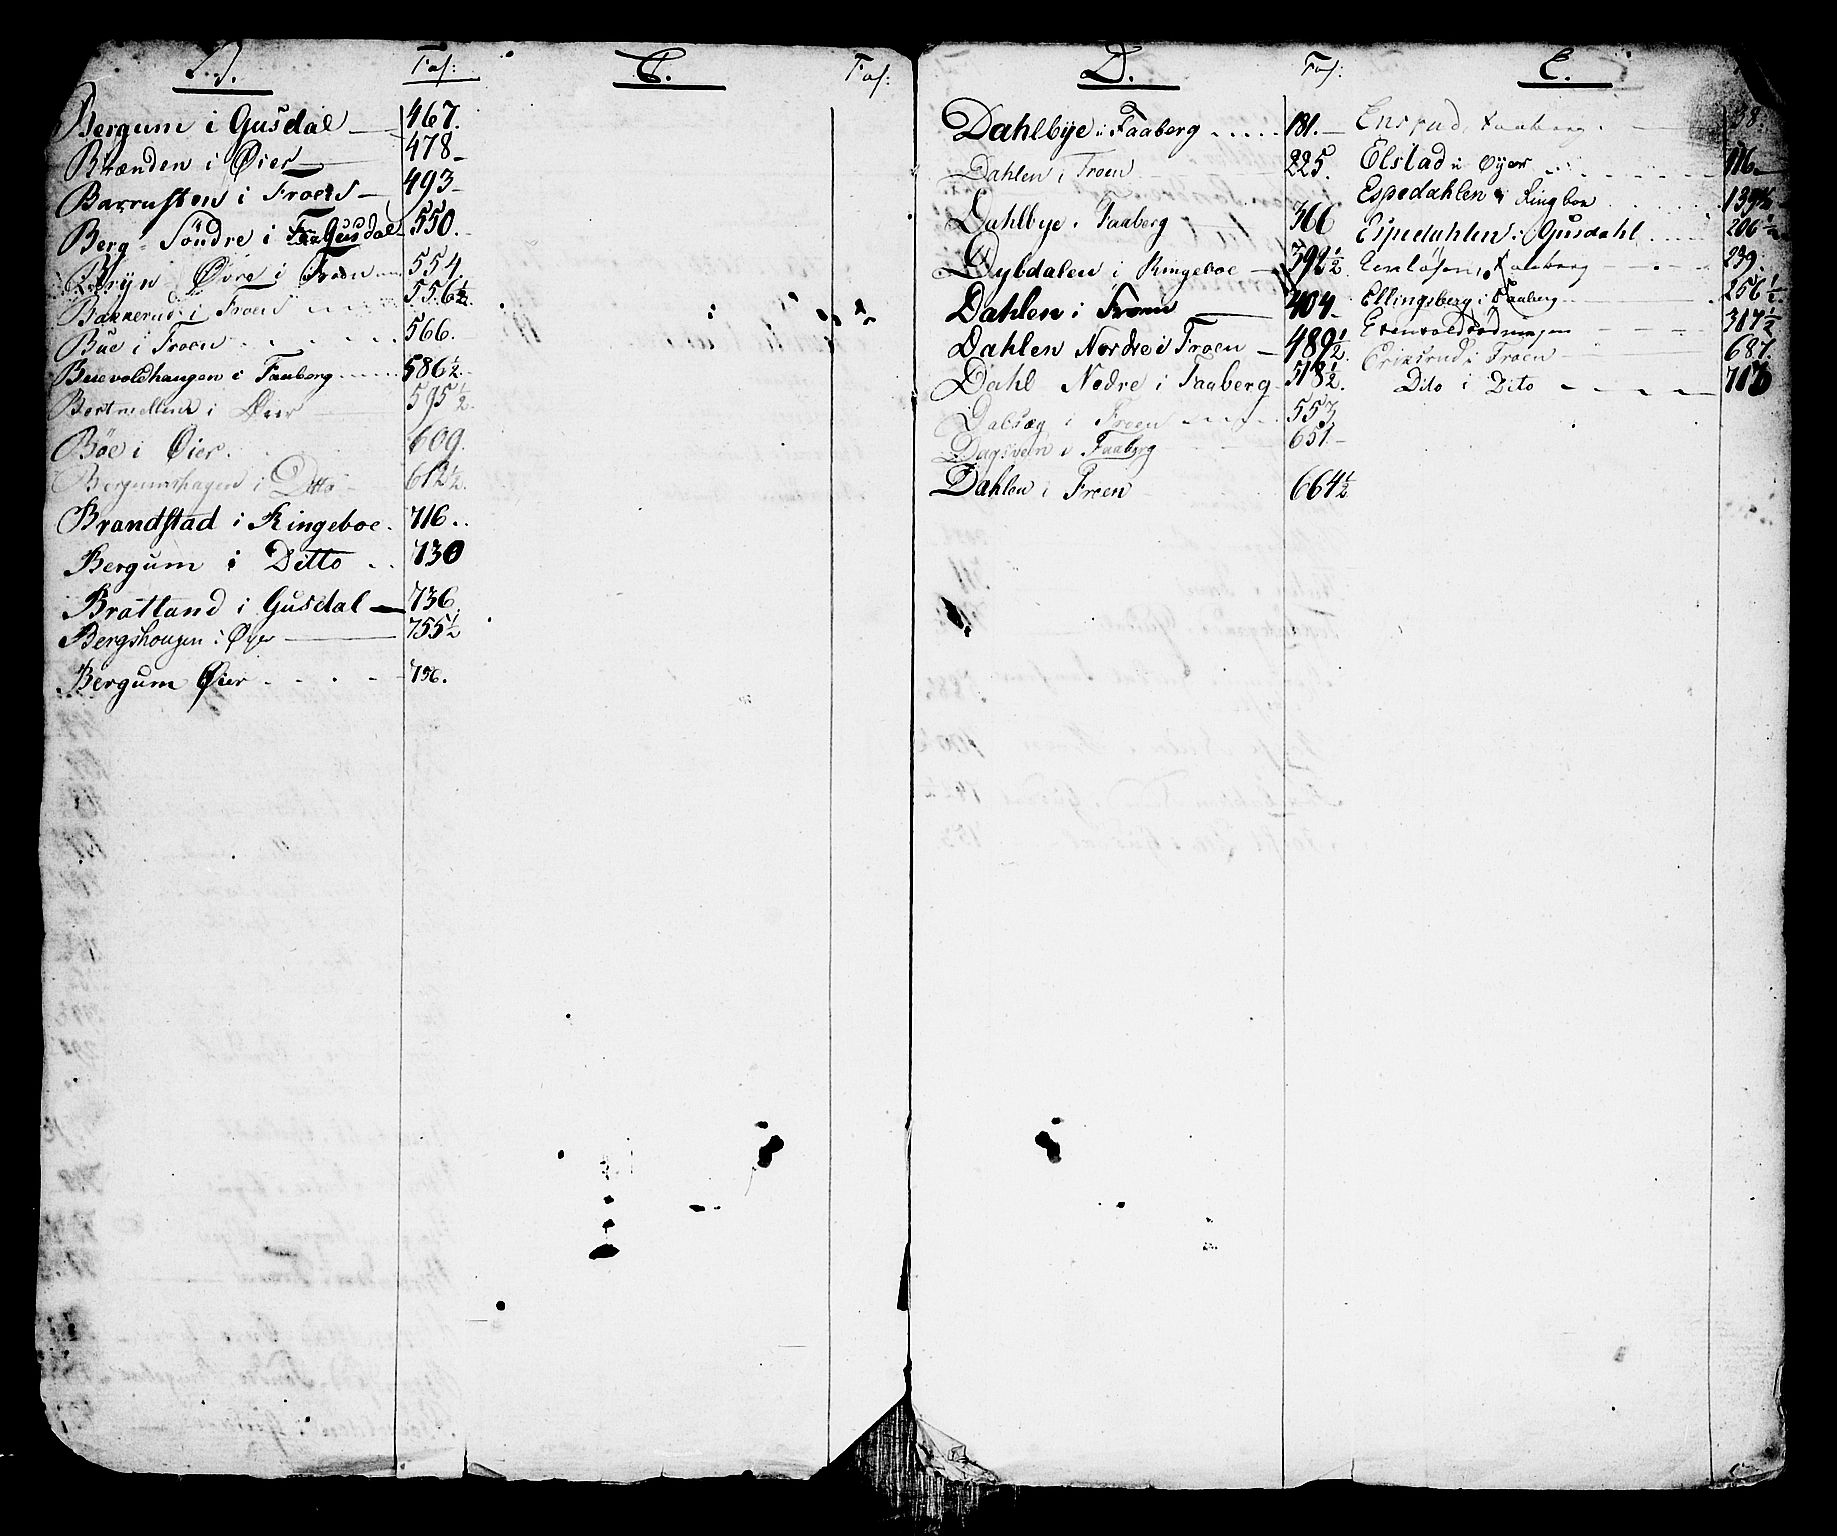 B. Fol:
Bergum i Gusdal 467.
Brænden i Øier 478
Barrusten i Froen 493
Berg Söndre i Gusdal 550.
Bryn Øvre i Froen 554
Bakkerud i Froen 556½
Bue i Froen 566.
Buevoldhaugen i Faaberg 586½
i Øier 595½
Böe i Øier. 609.
Bergumshagen i Ditto 612½
Brandstad i Ringeboe. 716.
Bergum i Ditto 730
Bratland i Gusdal 736.
Bergshougen i Øyer 755½
Bergum Øier 756.
C. Fol:
D. Fol:
Dahlbÿe i Faaberg 181.
Dahlen i Froen 225.
Dahlbye i Faaberg 366
Dybdalen i Ringeboe 392½
Dahlen i Froen 404
Dahlen Nordre i Froen 489½
Dahl Nedre i Faaberg 518½.
Dalsæg i Froen 553
Dagsvein i Faaberg 651.
Dahlen i Froen 664½
E.
Ensrud, Faaberg 38.
Elstad i Øyer 116
Espedahlen i Ringboe
Espedahlen i Gusdahl 206½
Faaberg 239.
Ellingsberg i Faaberg 256½
Evenvoldrödningen 317½
Eriksrud i Froen 687.
Dito i Dito